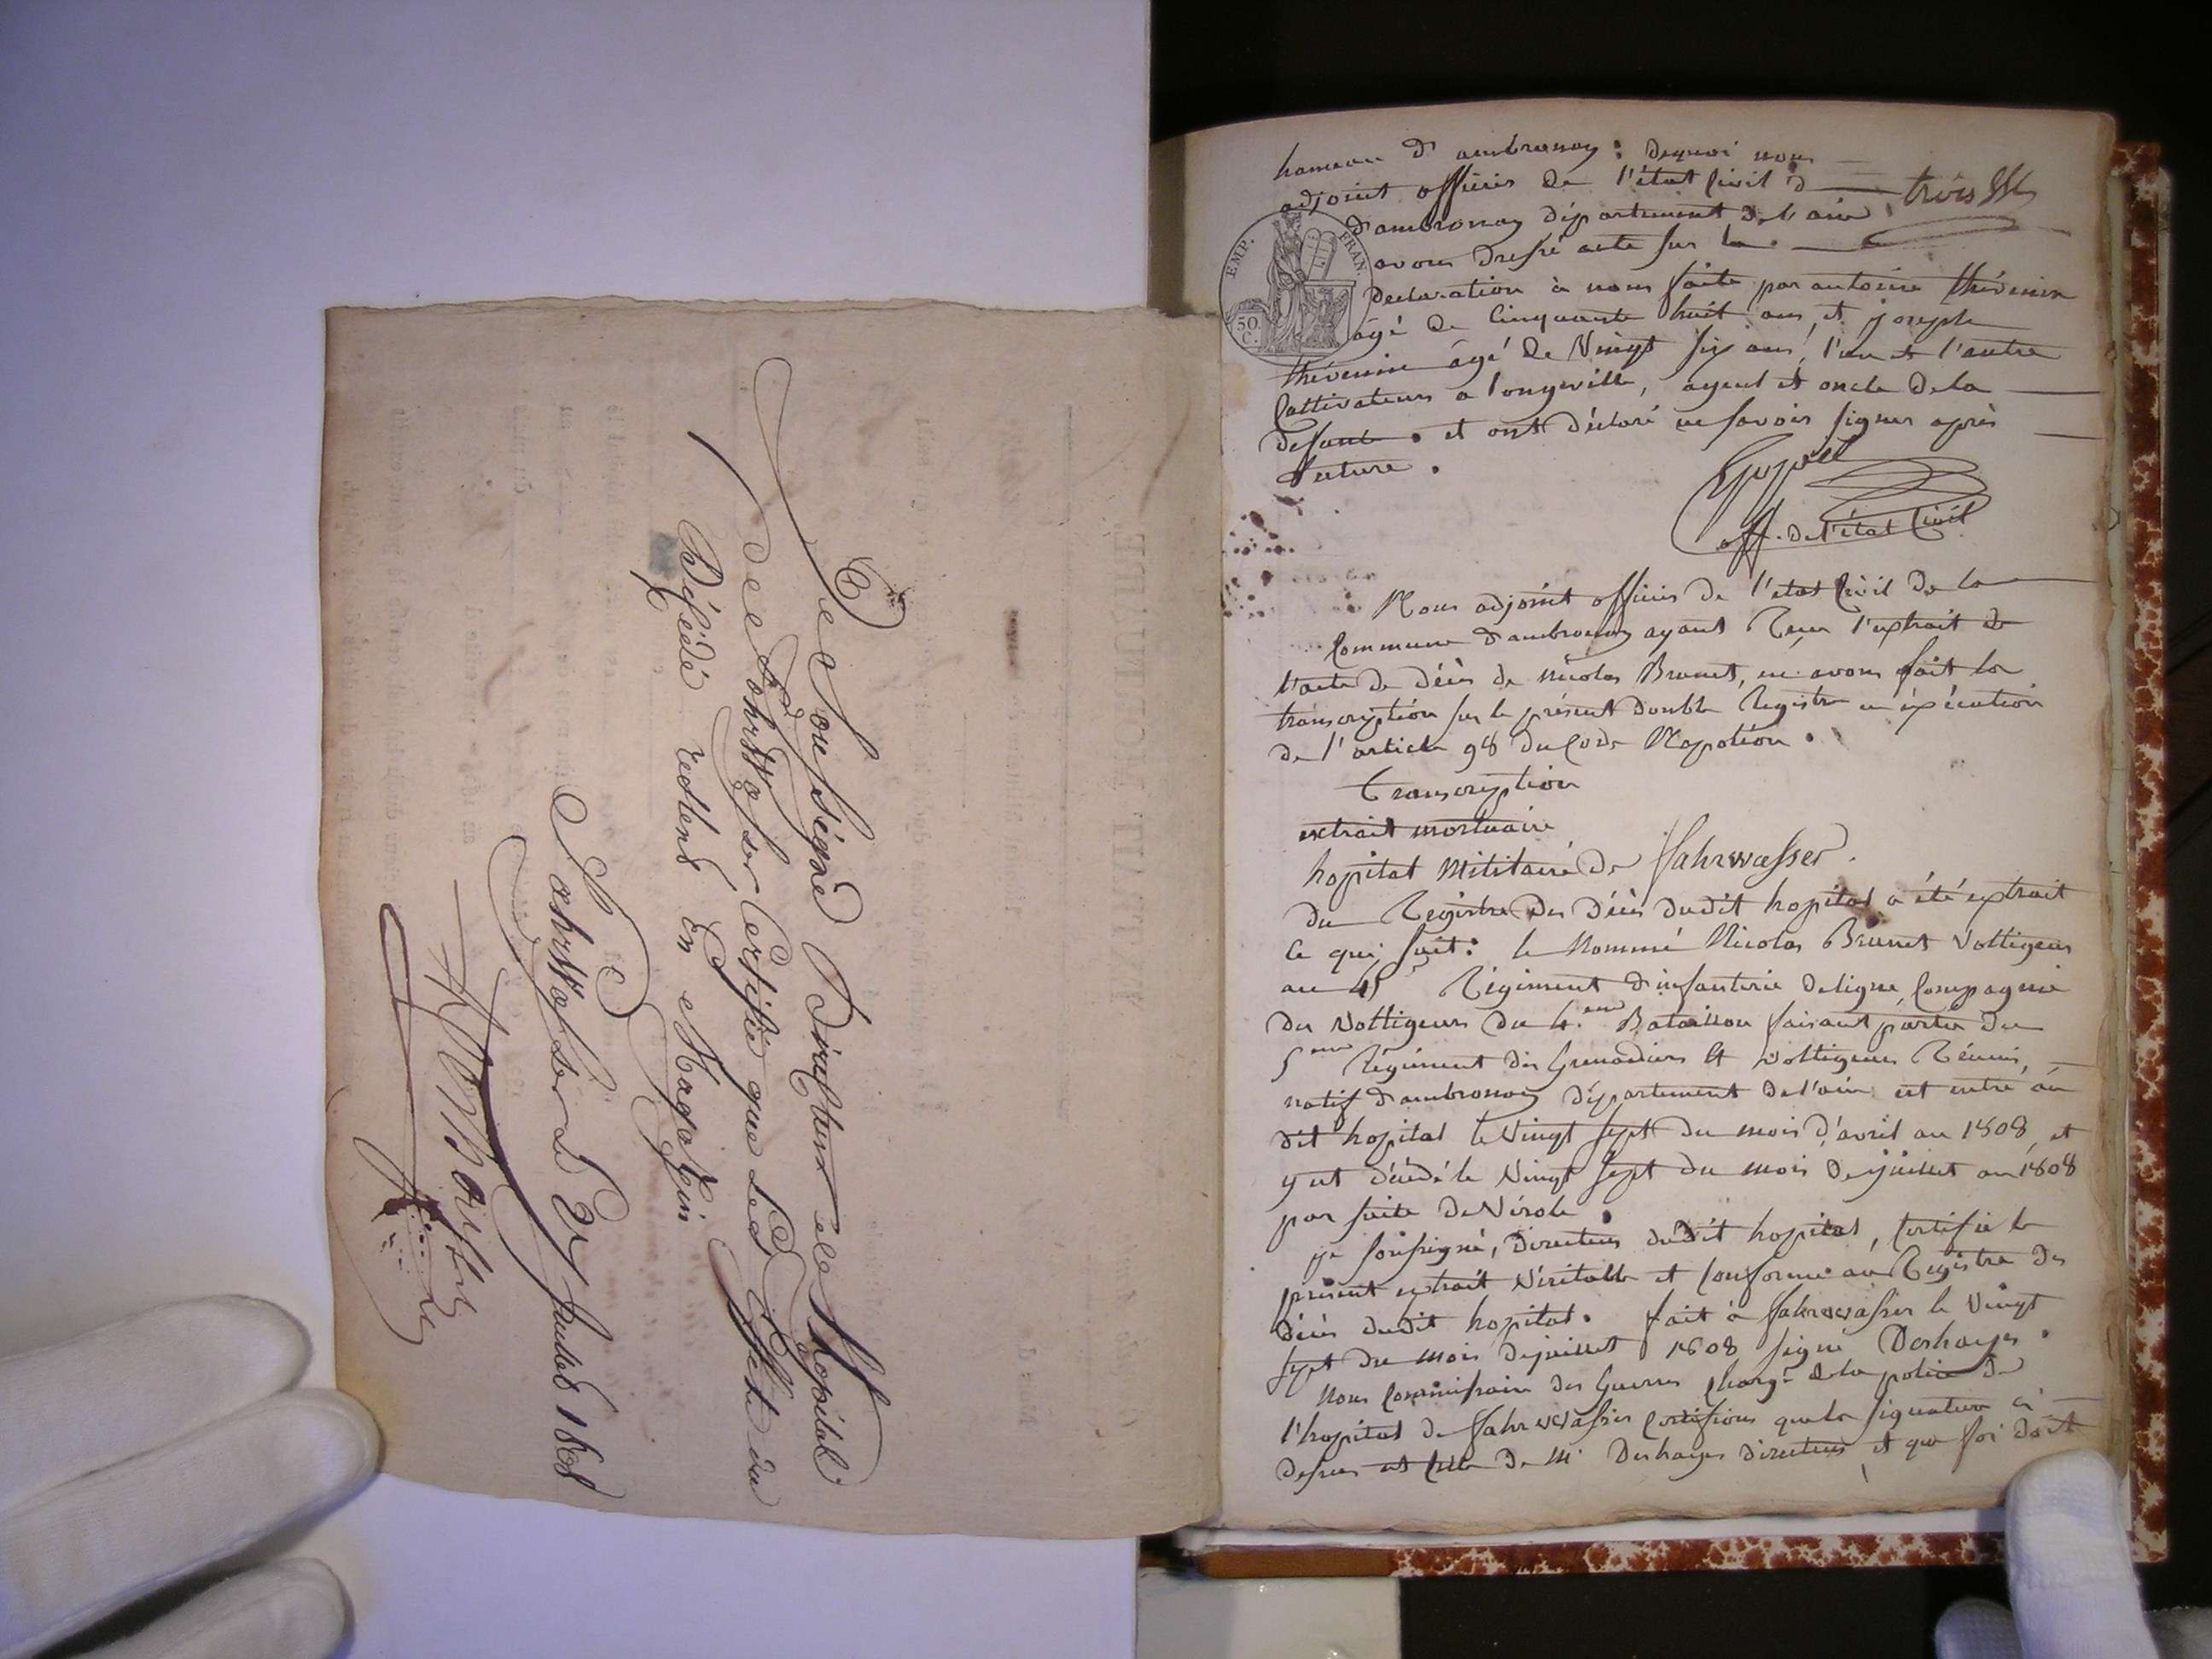 Je soussigné Directeur de l'hopital
de fahrWasser Certifie que les Effets du
Décédé restent En Magasin
fahrWasser Le 27 Juillet 1808
hameau d'ambronay : dequoi nous
adjoint officier de l'état Civil d
d'ambronay département de l'ain
avons dressé acte sur la
déclaration à nous faite par antoine thévenin
âgé de Cinquante huit ans, et joseph
thévenin âgé de Vingt six ans, l'un et l'autre
Cultivateurs a longeville, ayeul et oncle de la
defunte. et ont déclaré ne savoir signer après
lecture.
EMP. FRAN.
50 C.
off. de l'état Civil
Nous adjoint officier de l'état Civil de la
Commune d'ambronay ayant Reçu l'extrait de
l'acte de décès de nicolas Brunet, en avons fait la
transcription sur le présent double Registre en exécution
de l'article 98 du Code Napoléon.
Transcription
extrait mortuaire
hopital Militaire de fahrwasser.
du Registre des décès dudit hopital a été extrait
ce qui suit : le Nommé Nicolas Brunet Voltigeur
au 45 Régiment d'infanterie de ligne, Compagnie
des Voltigeurs du 4.eme Bataillon faisant partie du
5eme Régiment des Grenadiers et Voltigeurs Réunis,
natif d'ambronay département de l'ain est entré au
dit hopital le Vingt sept du mois d'avril an 1808, et
y est décédé le Vingt sept du mois de juillet an 1808
par suite de Vérole.
je soussigné, directeur dudit hopital, Certifie le
présent extrait Véritable et Conforme au Registre des
décès dudit hopital. fait à fahrwasser le Vingt
sept du mois de juillet 1808 signé Deshayes.
Nous Commissaire des Guerres Chargé de la police de
l'hopital de fahrwasser Certifions que la signature ci
dessus est celle de Mr Deshayes directeur et que foi doit